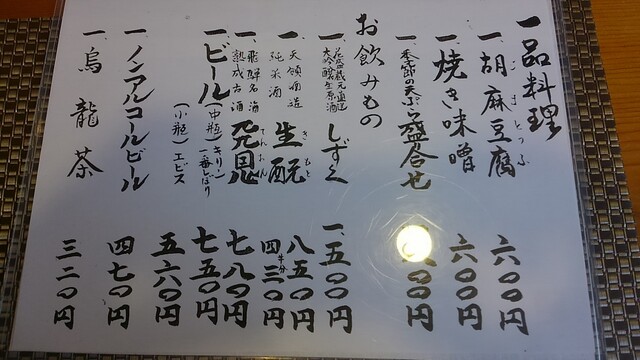 一品料理
一 胡麻豆腐 六〇〇円
ごまとうふ
一 焼き味噌 六〇〇円
一 季節の天ぷら盛合せ 〇〇円
お飲みもの
一 蔵元直送
大吟醸生原酒 しずく 一、五〇〇円
一 天領酒造
純米酒 生酛 八五〇円
きもと
半分 四三〇円
一 飛騨名酒
熟成古酒 七八〇円
一 ビール (中瓶) キリン一番しぼり 七五〇円
(小瓶) エビス 五六〇円
一 ノンアルコールビール 四七〇円
一 烏龍茶 三二〇円